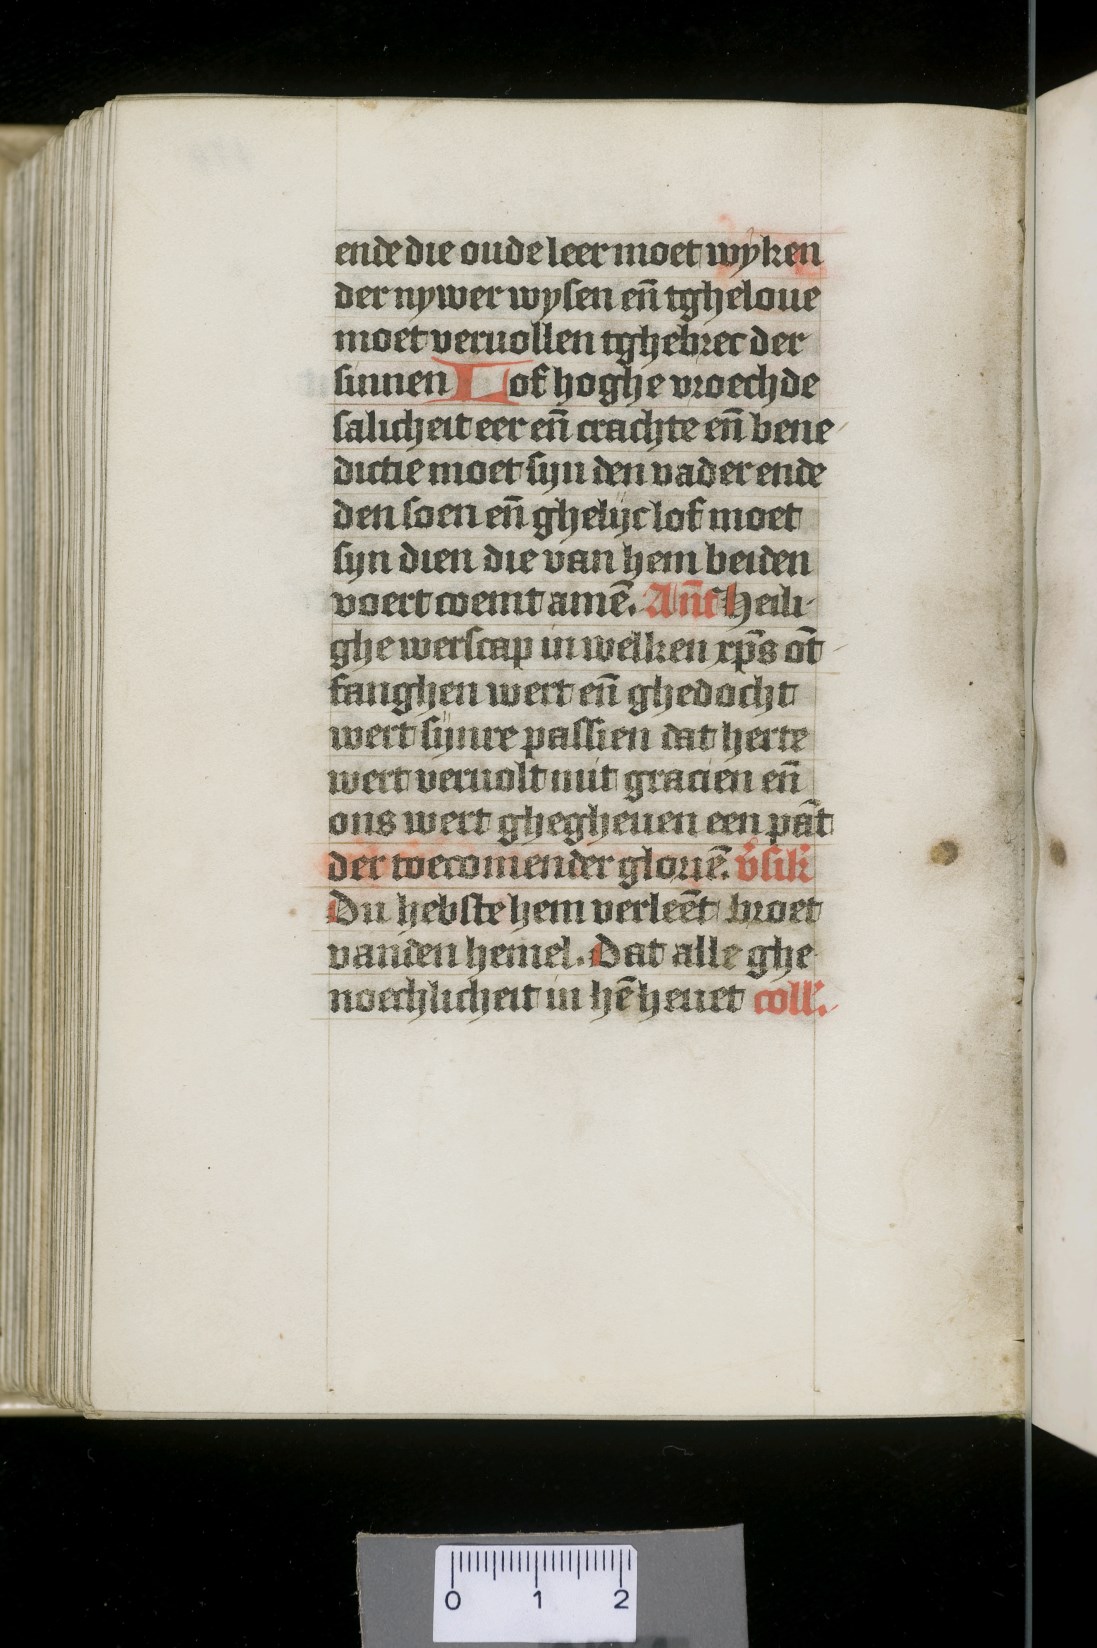 ende die oude leer moet wyken
der nywer wysen en̄ tgheloue
moet veruollen tghebrec der
sinnen Lof hoghe vroechde
salicheit eer en̄ crachte en̄ bene
dictie moet syn den vader ende
den soen en̄ ghelijc lof moet
syn dien die van hem beiden
voert coemt amē. An̄t Heili
ghe werscap in welken xp̄s ōt
fanghen wert en̄ ghedocht
wert sijnre passien dat herte
wert veruolt mit gracien en̄
ons wert ghegheuen een pāt
der toecomender gloriē. v̄sik
Du hebste hem verleēt broet
vanden hemel. Dat alle ghe
noechlicheit in hē heuet coll.
0 1 2